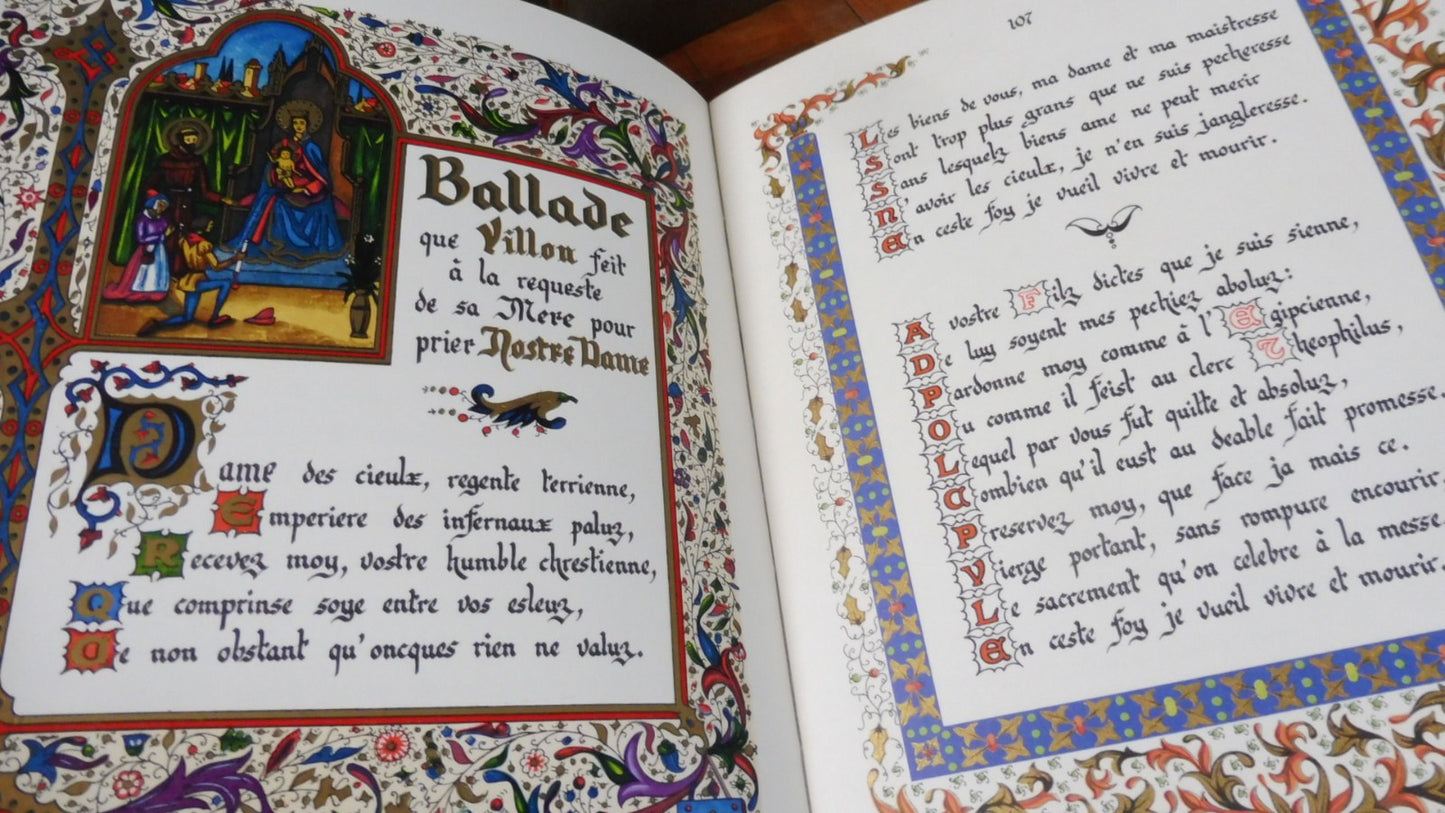 Ballade
que Villon feit
à la requeste
de sa Mere pour
prier Nostre Dame
Dame des cieulx, regente terrienne,
Emperiere des infernaux paluz,
Recevez moy, vostre humble chrestienne,
Que comprinse soye entre vos esleuz,
Ce non obstant qu'oncques rien ne valuz.
107
Les biens de vous, ma dame et ma maistresse
Sont trop plus grans que ne suis pecheresse
Sans lesquelz biens ame ne peut merir
N'avoir les cieulx, je n'en suis jangleresse.
En ceste foy je vueil vivre et mourir.
A vostre Filz dictes que je suis sienne,
De luy soyent mes pechiez aboluz:
Pardonne moy comme à l'Egipcienne,
Ou comme il feist au clerc Theophilus,
Lequel par vous fut quitte et absoluz,
Combien qu'il eust au deable fait promesse.
Preservez moy, que face ja mais ce.
Vierge portant, sans rompure encourir
Le sacrement qu'on celebre à la messe.
En ceste foy je vueil vivre et mourir.